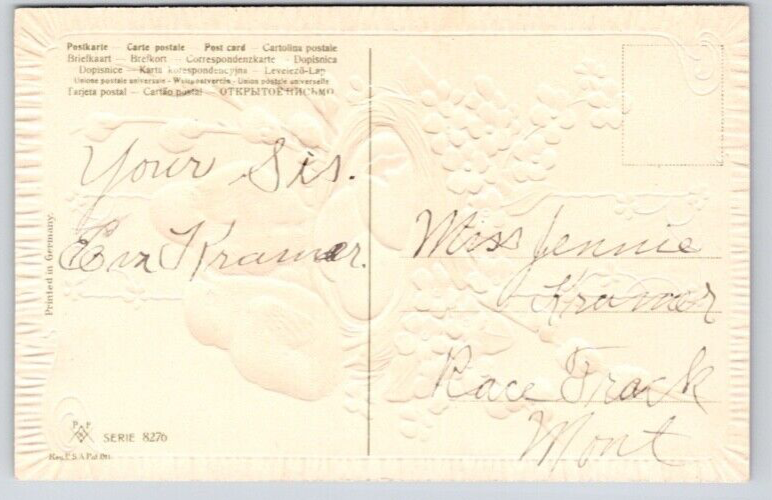 Postkarte — Carte postale — Post card — Cartolina postale
Briefkaart — Brefkort — Correspondenzkarte — Dopisnica
Dopisnice — Karta korespondencyjna — Levelező-Lap
Union postale universelle — Weltpostverein — Union postale universelle
Tarjeta postal — Cartão postal — ОТКРЫТОЕ ПИСЬМО
Your Sis.
Kramer.
Miss Jennie
Kramer
Race Track
Mont
Printed in Germany
P F
SERIE 8276